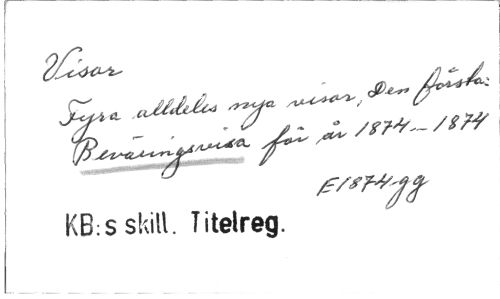 Visor
Fyra alldeles nya visor, Den första:
Beväringsvisa för år 1874 – 1874
E1874gg
KB:s skill. Titelreg.